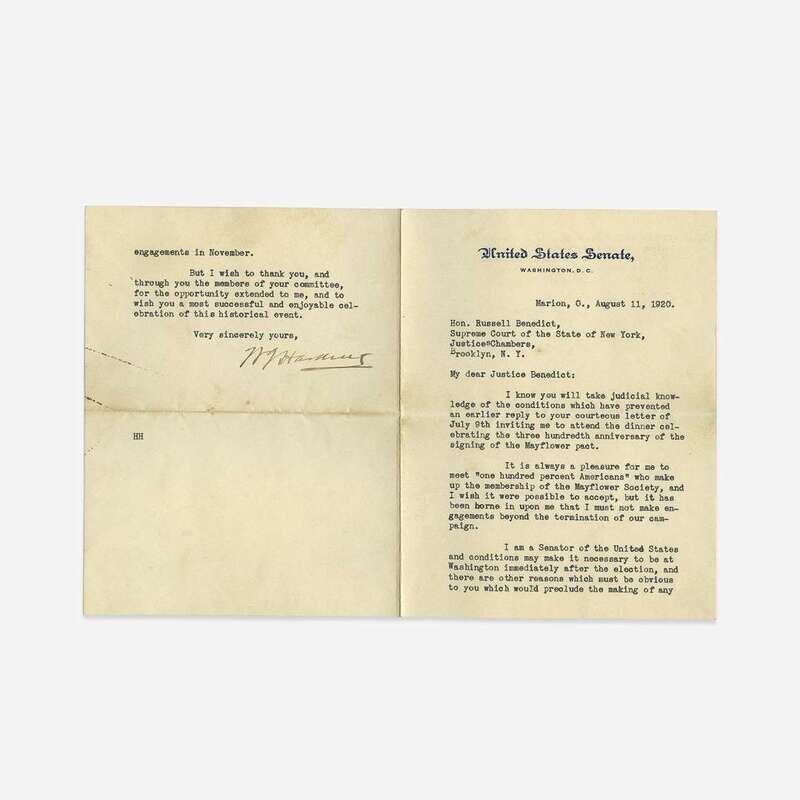 United States Senate,
WASHINGTON, D. C.
Marion, O., August 11, 1920.
Hon. Russell Benedict,
Supreme Court of the State of New York,
Justice Chambers,
Brooklyn, N. Y.
My dear Justice Benedict:
I know you will take judicial know-
ledge of the conditions which have prevented
an earlier reply to your courteous letter of
July 9th inviting me to attend the dinner cel-
ebrating the three hundredth anniversary of the
signing of the Mayflower pact.
It is always a pleasure for me to
meet "one hundred percent Americans" who make
up the membership of the Mayflower Society, and
I wish it were possible to accept, but it has
been borne in upon me that I must not make en-
gagements beyond the termination of our cam-
paign.
I am a Senator of the United States
and conditions may make it necessary to be at
Washington immediately after the election, and
there are other reasons which must be obvious
to you which would preclude the making of any
engagements in November.
But I wish to thank you, and
through you the members of your committee,
for the opportunity extended to me, and to
wish you a most successful and enjoyable cel-
ebration of this historical event.
Very sincerely yours,
W G Harding
HH